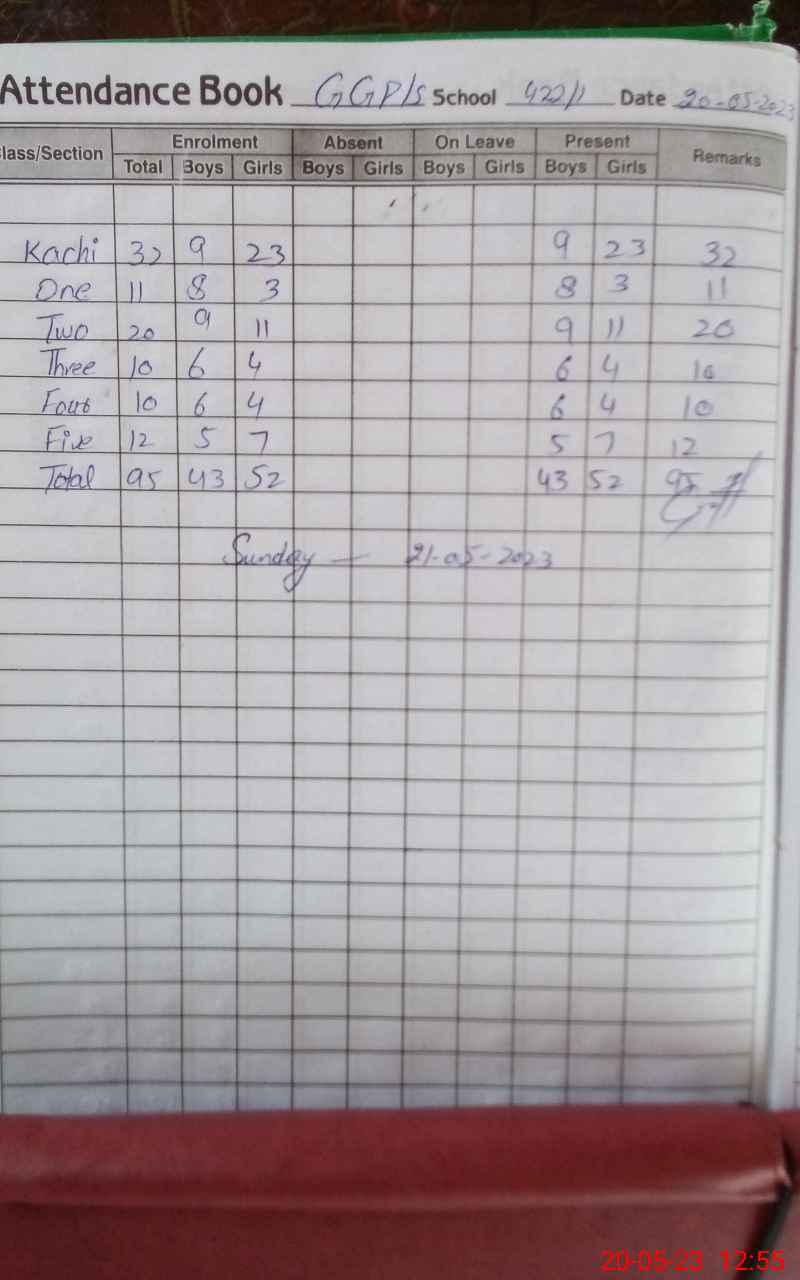 Attendance Book GGP/S School 422/1 Date 20-05-2023
lass/Section Enrolment Absent On Leave Present Remarks
Total Boys Girls Boys Girls Boys Girls Boys Girls
Kachi 32 9 23 9 23 32
One 11 8 3 8 3 11
Two 20 9 11 9 11 20
Three 10 6 4 6 4 10
Four 10 6 4 6 4 10
Five 12 5 7 5 7 12
Total 95 43 52 43 52 95
Sunday — 21-05-2023
20-05-23 12:55